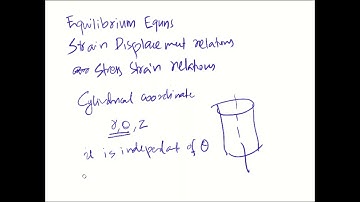 Equilibrium Equns
Strain Displacement relations
Stress Strain relations
Cylindrical coordinate
r, θ, z
is independent of θ